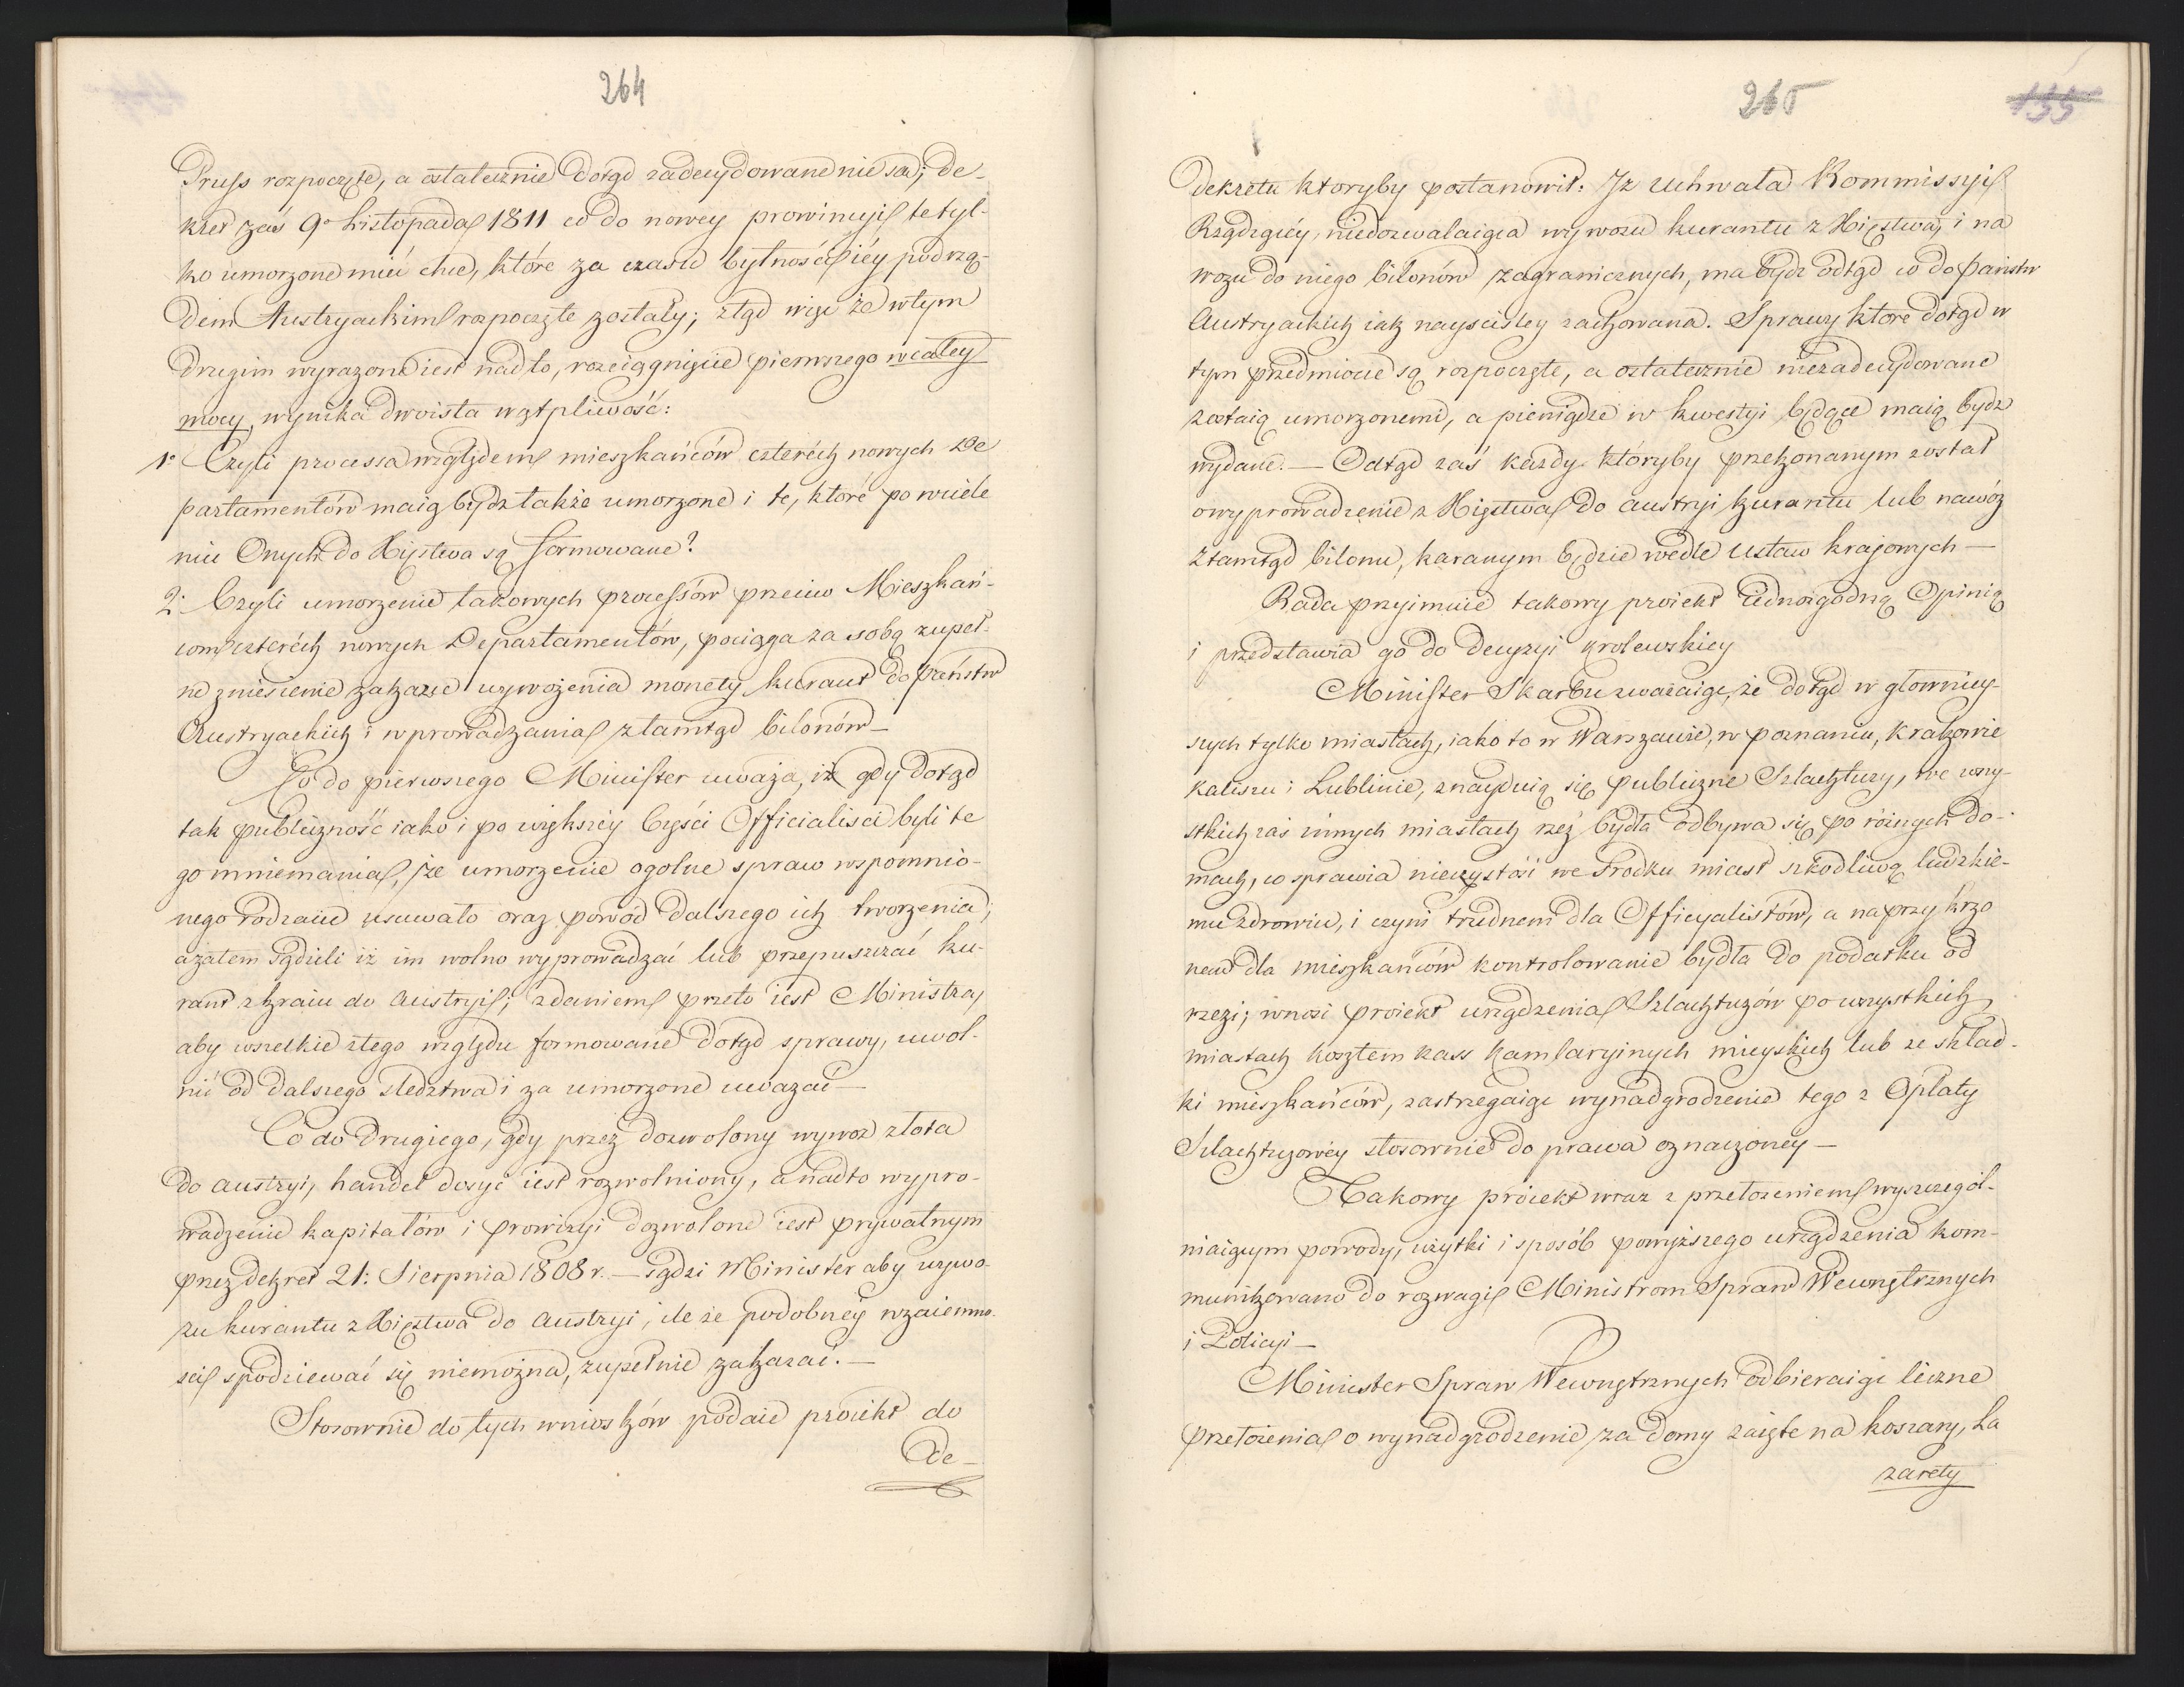 264
Pruss rozpoczęte, a ostatecznie dotąd zadecydowane nie są; de-
kret zaś 9º Listopada 1811 co do nowey prowincyi te tyl-
ko umorzone mieć chce, które za czasu bytności iéy pod rzą-
dem Austryackim rozpoczęte zostały; ztąd więc że w tym
drugim wyrażone iest nadto, rozciągnięcie pierwszego w całey
mocy, wynika dwoista wątpliwość:
1º Czyli processa względem mieszkańców czteréch nowych De
partamentów maią bydź także umorzone i te, które po wciele
niu Onych do Xięstwa są formowane?
2. Czyli umorzenie takowych processów przeciw Mieszkań-
com czteréch nowych Departamentów, pociąga za sobą zupeł-
ne zniesienie zakazu wywożenia monety kurant do Państw
Austryackich i wprowadzania ztamtąd bilonów—
Co do pierwszego Minister uważa, iż gdy dotąd
tak publiczność iako i po większey części Officialisci byli te
go mniemania, że umorzenie ogolne spraw wspomnio-
nego rodzaiu usuwało oraz powód dalszego ich tworzenia;
a zatem sądzili iż im wolno wyprowadzać lub przepuszczać ku-
rant z kraiu do Austryi; zdaniem przeto iest Ministra,
aby wszelkie z tego względu formowane dotąd sprawy, uwol-
nić od dalszego sledztwa i za umorzone uważać—
Co do drugiego, gdy przez dozwolony wywoz złota
do Austryi, handel dosyć iest rozwolniony, a nadto wypro-
wadzenie kapitałów i prowizyi dozwolone iest prywatnym
przez dekret 21: Sierpnia 1808 r. — sądzi Minister aby wywo-
zu kurantu z Xięstwa do Austryi, ile że podobney wzaiemno-
sci spodziewać się niemożna, zupełnie zakazać. —
Stosownie do tych wniosków podaie proiekt do
De-
265
155
Dekretu ktoryby postanowił: Iz uchwała Kommissyi
Rządzącéy, niedozwalaiąca wywozu kurantu z Xięstwa, i na
wozu do niego bilonów zagranicznych, ma bydź odtąd co do Państw
Austryackich iak nayscisley zachowana. Sprawy ktore dotąd w
tym przedmiocie są rozpoczęte, a ostatecznie niezadecydowane
zostaią umorzonemi, a pieniądze w kwestyi będące maią bydź
wydane. — Odtąd zaś każdy któryby przekonanym został
o wyprowadzenie z Xięstwa do Austryi kurantu lub nawóz
ztamtąd bilonu, karanym będzie wedle Ustaw krajowych —
Rada przyimuie takowy proiekt iednozgodną Opinią
i przedstawia go do decyzyi Krolewskiey
Minister Skarbu zważaiąc, że dotąd w głowniey-
szych tylko miastach, iako to w Warszawie, w Poznaniu, Krakowie
Kaliszu i Lublinie, znayduią się publiczne Szlachtuzy, we wszy-
stkich zaś innych miastach rzeź bydła odbywa się po różnych do-
mach, co sprawia nieczystość we srodku miast szkodliwą ludzkie-
mu zdrowiu, i czyni trudnem dla Officyalistów, a naprzykrzo
nem dla mieszkańców kontrolowanie bydła do podatku od
rzezi; wnosi proiekt urządzenia Szlachtuzów po wszystkich
miastach kosztem kass Kamlaryinych mieyskich lub ze skład-
ki mieszkańców, zastrzegaiąc wynadgrodzenie tego z Opłaty
Szlachtuzowéy stosownie do prawa oznaczoney —
Takowy proiekt wraz z przełożeniem wyszczegól-
niaiącym powody, użytki i sposób powyższego urządzenia kom-
munikowano do rozwagi Ministrom Spraw Wewnętrznych
i Policyi —
Minister Spraw Wewnętrznych odbieraiąc liczne
przełożenia o wynadgrodzenie za domy zaięte na koszary, La
zarety